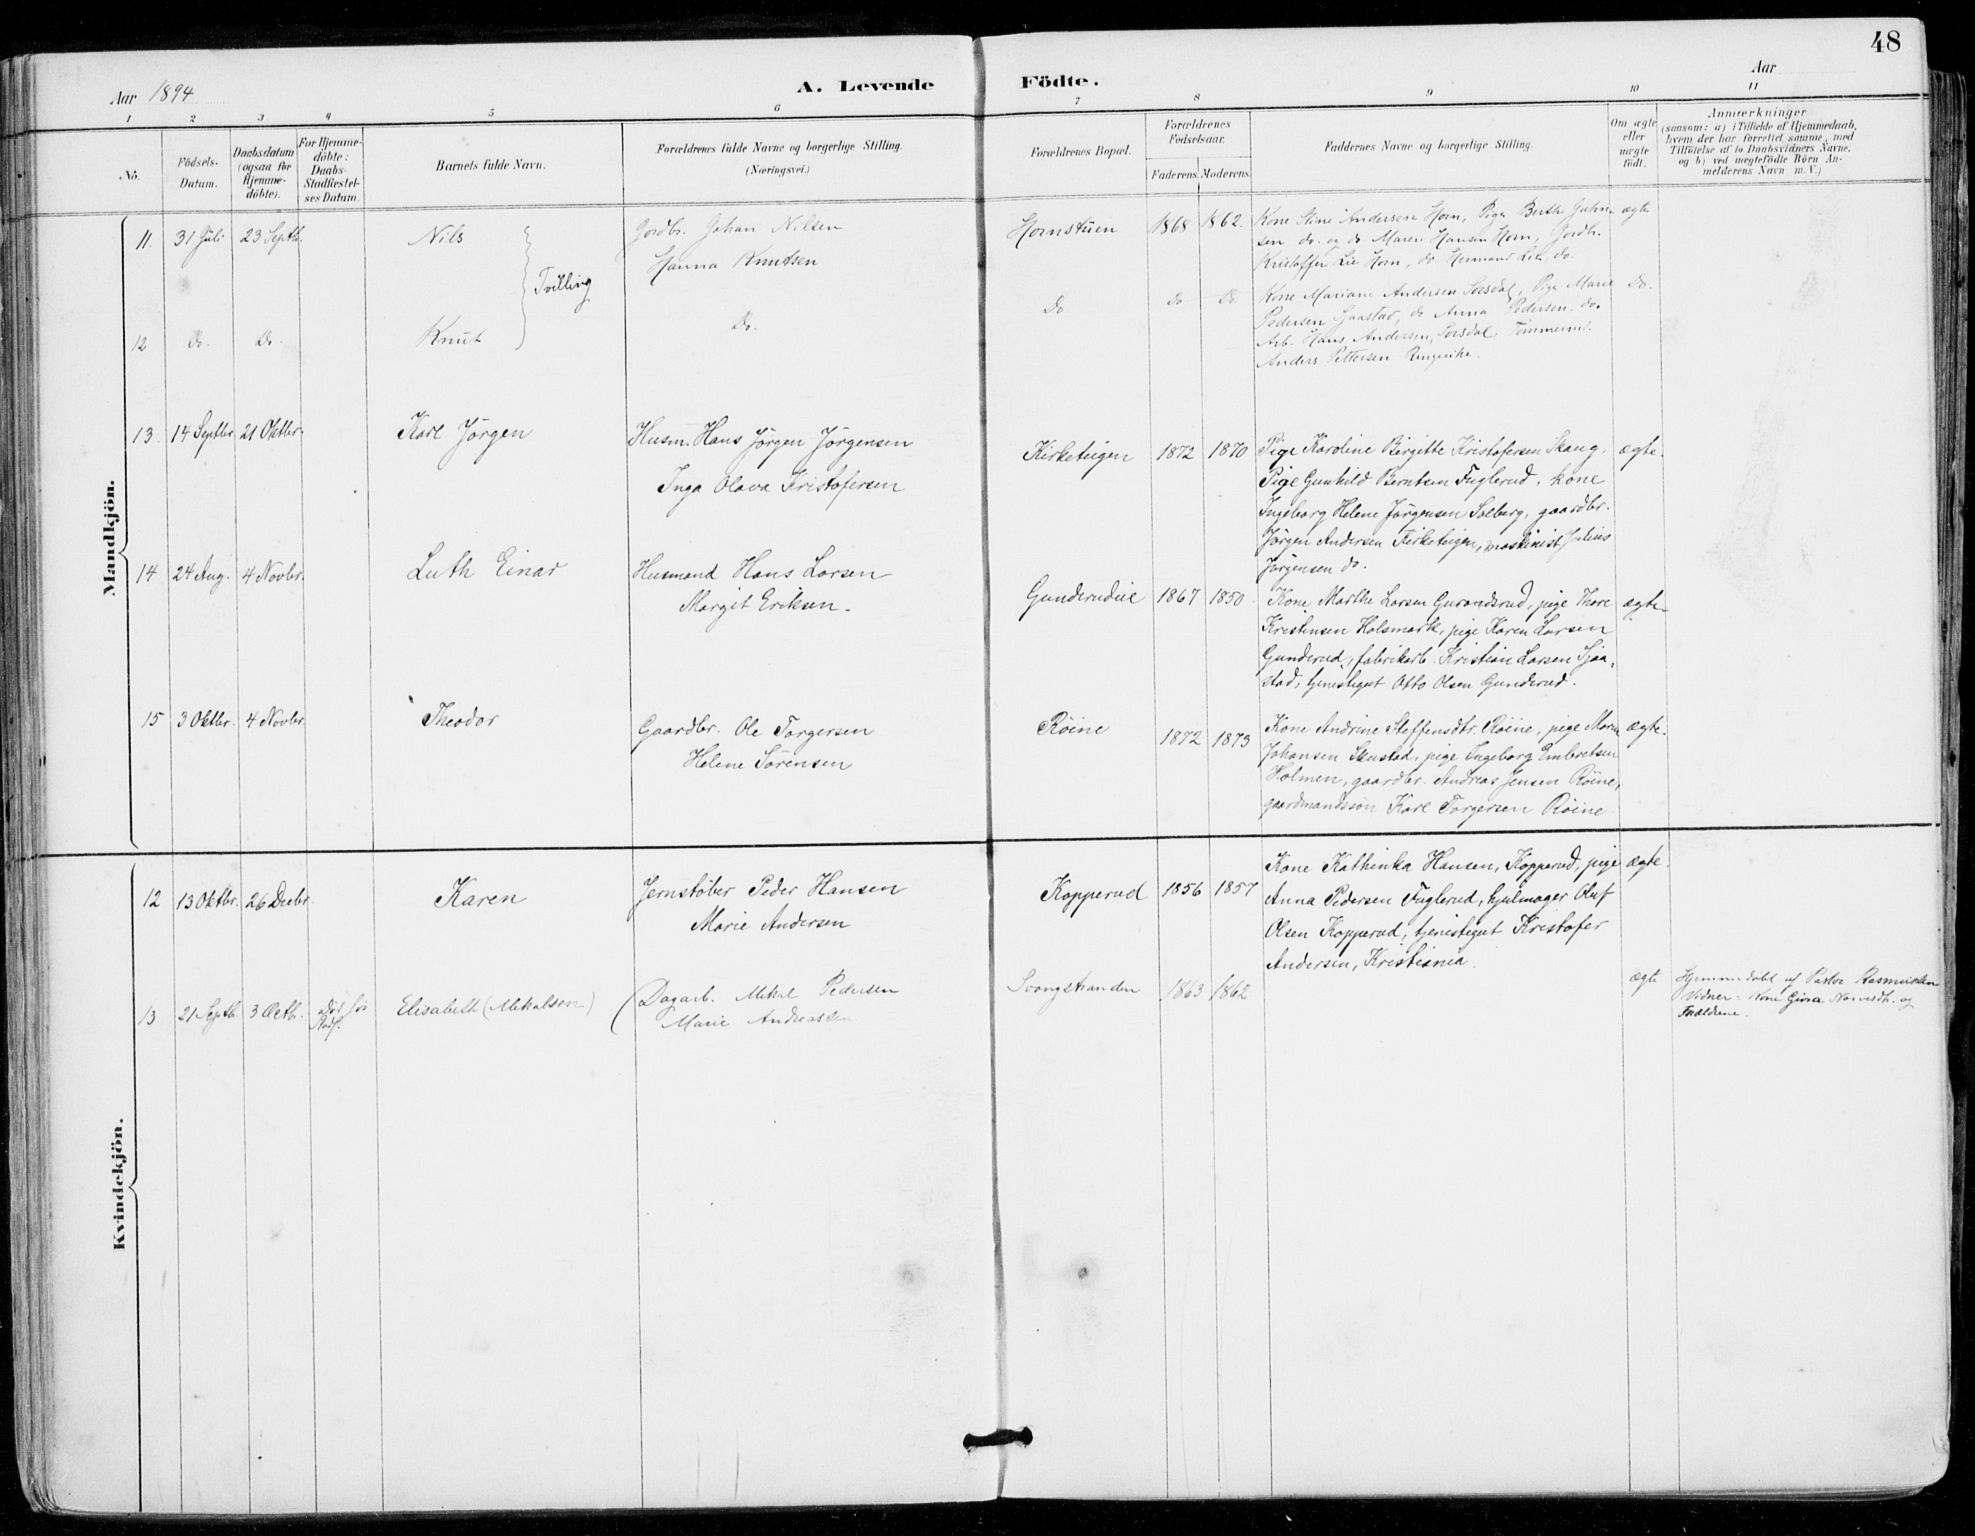 48
Aar 1894
A. Levende Födte.
Aar
1 2 3 4 5 6 7 8 9 10 11
No.
Födsels-
Datum.
Daabsdatum
(ogsaa for
Hjemme-
döbte).
For Hjemme-
döbte:
Daabs-
Stadfæstel-
ses Datum.
Barnets fulde Navn.
Forældrenes fulde Navne og borgerlige Stilling.
(Næringsvei.)
Forældrenes Bopæl.
Forældrenes
Födselsaar.
Faderens. Moderens.
Faddernes Navne og borgerlige Stilling.
Om ægte
eller
uægte
født.
Anmærkninger
(saasom: a) i Tilfælde af Hjemmedaab,
hvem der har forrettet samme, med
Tilföielse af to Daabsvidners Navne,
og b) ved uægtefödte Börn An-
melderens Navn m. V.)
Mandkjön.
11. 31 Juli 23 Septb. Nils
Jordbr. Johan Nilsen
Hanna Knutsen
Hornstuen 1868 1862.
Kone Stine Andersen Horn, Pige Berthe Johan-
sen do. og do Maren Hansen Horn, Jordbr.
Kristoffer Lie Horn, do Herman Lie do.
ægte
Tvilling
12 Do. Do. Knut
Do.
Do Do Do
Kone Mariane Andersen Sorsdal, Pige Marie
Pedersen Gaastad, do Anna Pedersen do.
Arb. Hans Andersen, Sorsdal, Tömmerm.
Anders Pettersen Ringerike.
Do.
13. 14 Septbr. 21 Oktbr. Karl Jörgen
Husm. Hans Jörgen Jörgensen
Inga Olava Kristofersen
Kirketeigen 1872 1870
Pige Karoline Birgitte Kristofersen Skaug,
Pige Gunhild Berntsen Fuglerud, kone
Ingeborg Helene Jörgensen Solberg, gaardbr.
Jörgen Andersen Kirketeigen, maskinist Julius
Jörgensen do.
ægte.
14 24 Aug. 4 Novbr. Luth Einar
Husmand Hans Larsen
Margit Eriksen.
Gunderudeie 1867 1850.
Kone Marthe Larsen Gunderud, pige Thore
Kristensen Holsmark, pige Karen Larsen
Gunderud, fabrikarb. Kristian Larsen Sjaa-
stad, tjenestegut Otto Olsen Gunderud.
ægte
15 3 Oktbr. 4 Novbr. Theodor
Gaardbr. Ole Torgersen
Helene Sörensen
Röine 1872 1873
Kone Andrine Steffensdtr. Röine, pige Maren
Johansen Skustad, pige Ingeborg Embretsen
Holmen, gaardbr. Andreas Jensen Röine,
gaardmandssön Karl Torgersen Röine
ægte.
Kvindekjön.
12 13 Oktbr. 26 Decbr. Karen
Jernstöber Peder Hansen
Marie Andersen
Kopperud 1856 1857
Kone Kathinka Hansen, Kopperud, pige
Anna Pedersen Fuglerud, hjulmager Oluf
Olsen Kopperud, tjenestegut Kristofer
Andersen, Kristiania
ægte.
13 21 Septb. 3 Octb. död før Stadf. Elisabeth (Mikalsen)
Dagarb. Mikal Pedersen
Marie Andreassen
Svangstranden 1863 1862
ægte
Hjemmedöbt af Pastor Rasmussen
Vidner: Kone Gina og
Forældrene.